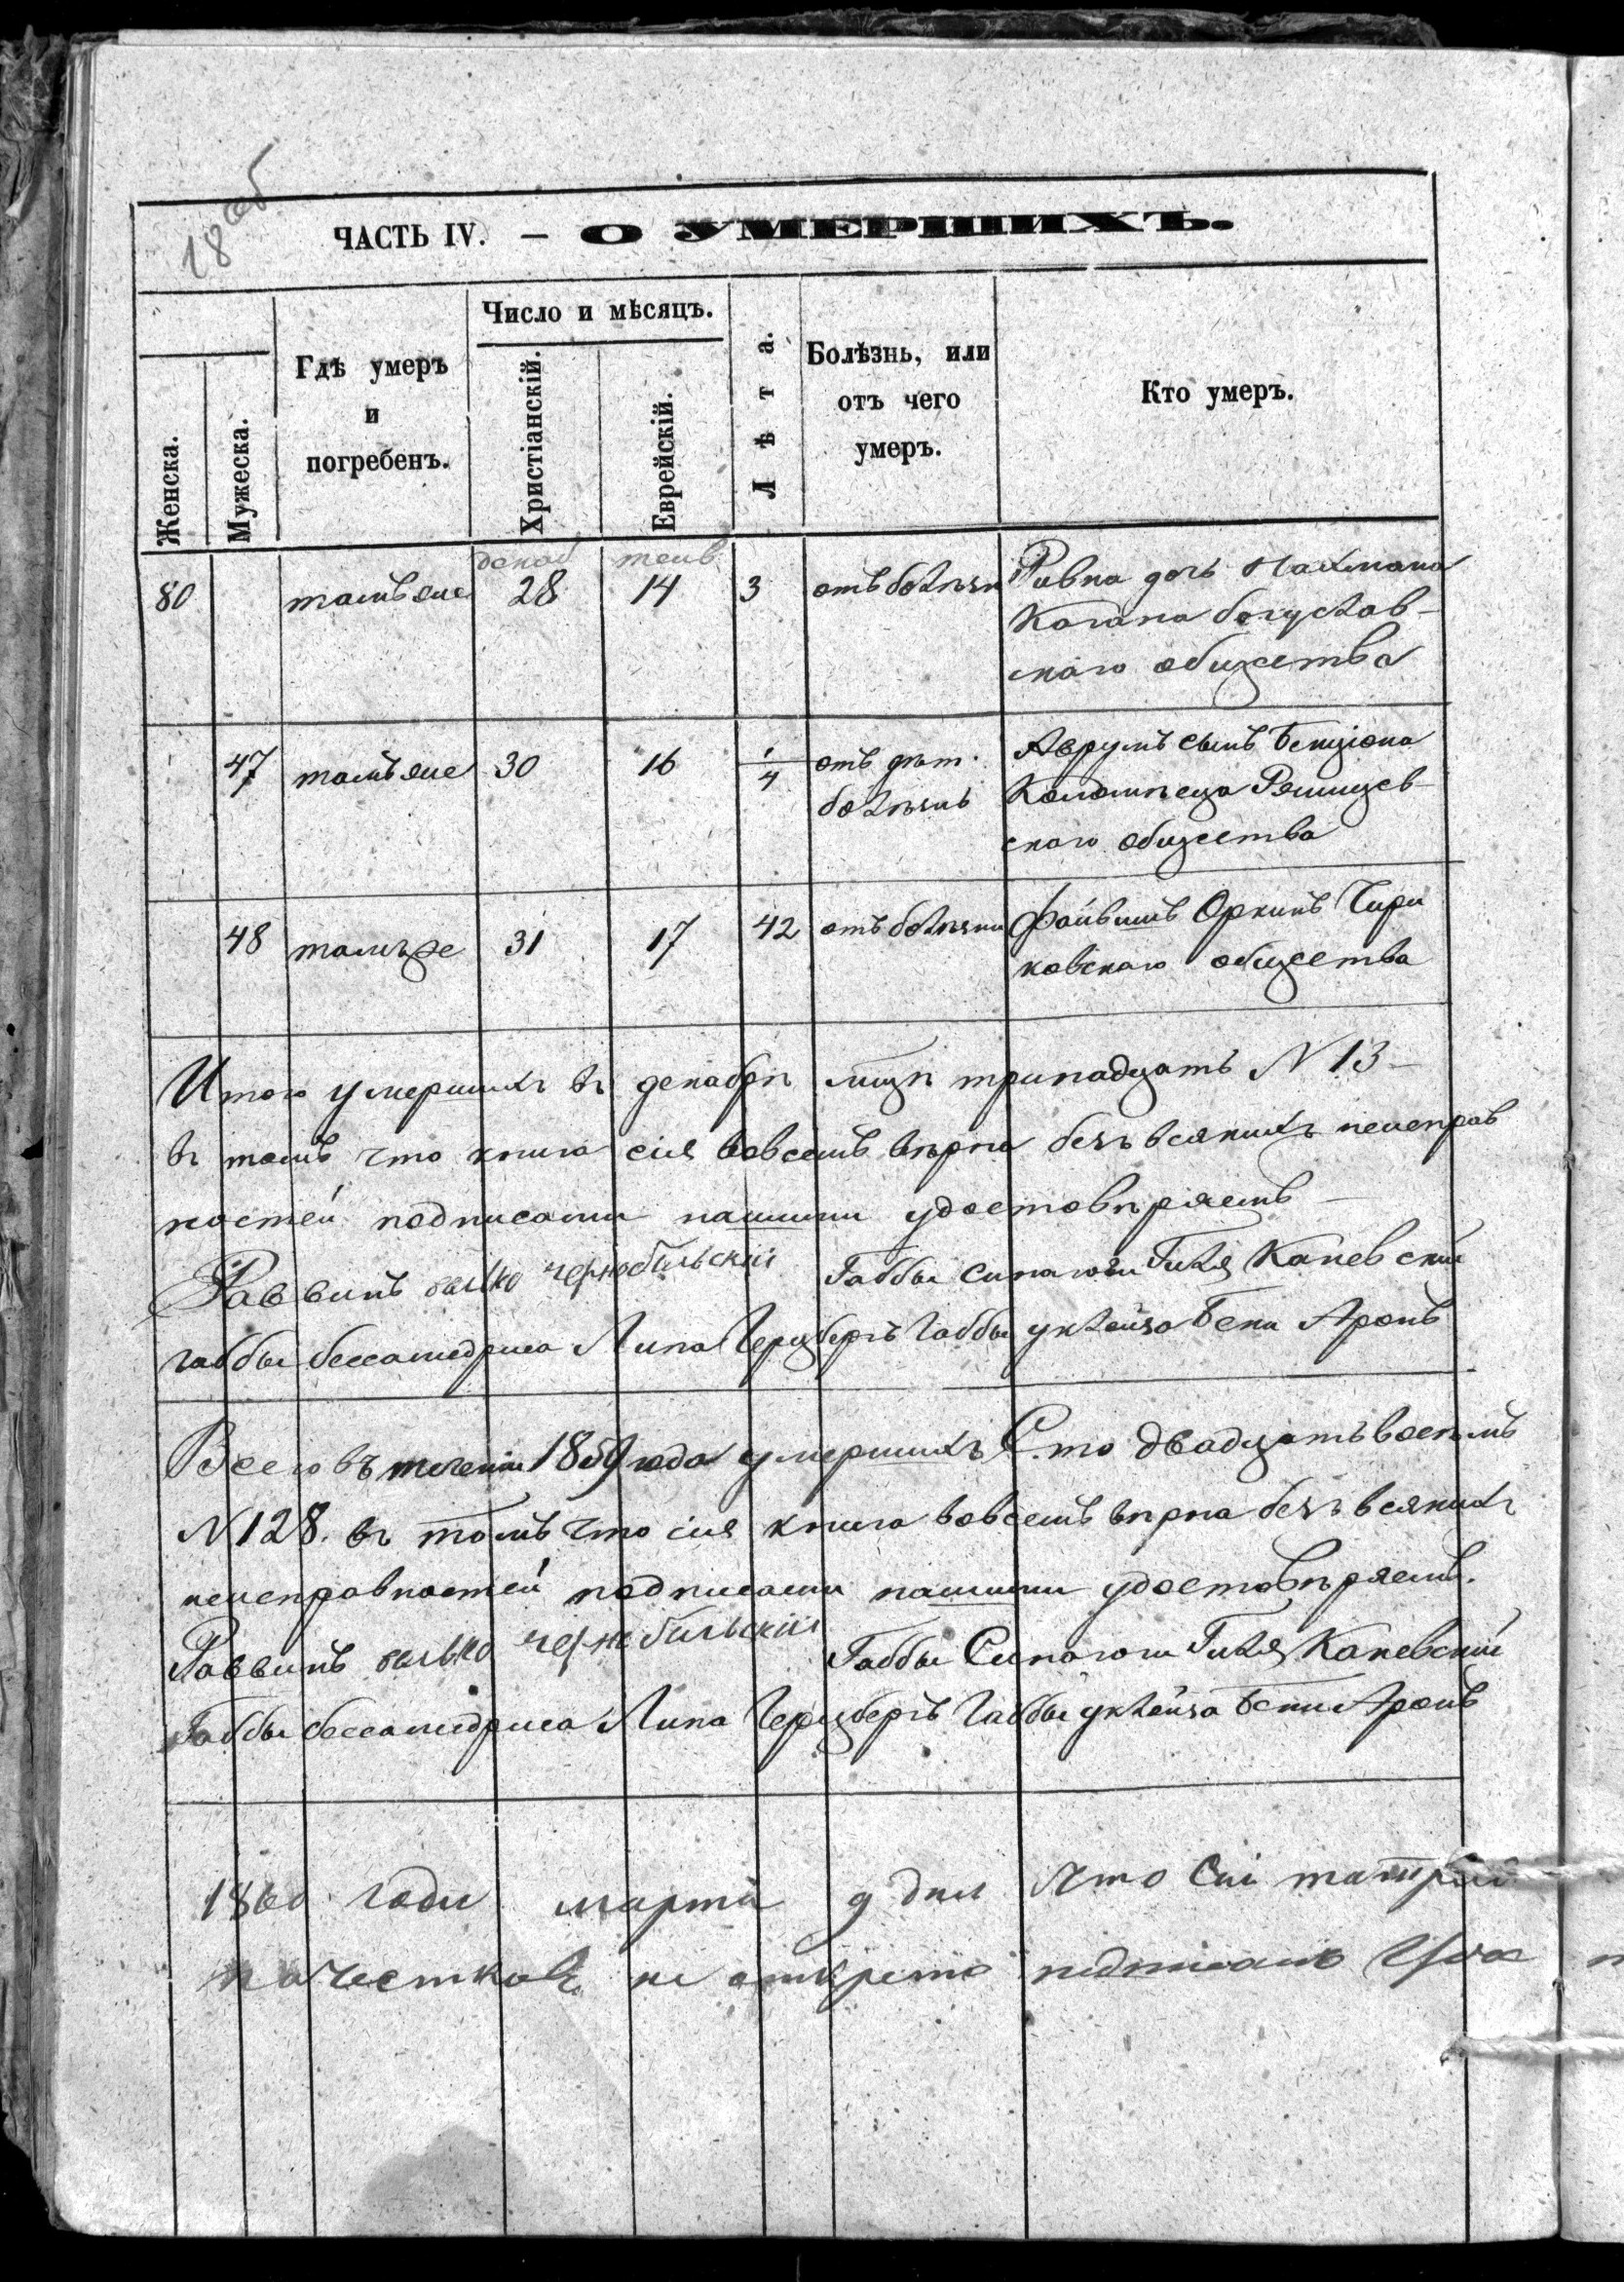 18 об
ЧАСТЬ IV. — О УМЕРШИХЪ.
Женска.
Мужеска.
Гдѣ умеръ
и
погребенъ.
Число и мѣсяцъ.
Христіанскій.
Еврейскій.
Лѣта.
Болѣзнь, или
отъ чего
умеръ.
Кто умеръ.
декаб тейв
80 тамъ же 28 14 3 отъ болѣзн Ривка дочь Нахмана
Когана богуслав-
скаго общества
47 тамъ же 30 16 1/4 отъ дѣт. Аврумъ сынъ Бенціона
болѣзнь Коломѣеца Ряшщев-
скаго общества
48 тамъ же 31 17 42 отъ болѣзни Файвишъ Оркинъ Чири
ковскаго общества
Итого умершихъ въ декабрѣ мцѣ тринадцать N 13 –
въ томъ что книга сія вовсемъ вѣрна безъ всякихъ неисправ
ностей подписами нашими удостовѣряемъ –
Раввинъ чернобильскій Габбы синагоги Гиля Каневский
габбы бессамедриса Липа Герцбергъ Габбы уклойза Бени Аронъ
Всего въ теченіи 1859 года умершихъ Сто двадцать восемъ
N 128. въ томъ что сія книга вовсемъ вѣрна безъ всякихъ
неисправностей подписами нашими удостовѣряемъ.
Раввинъ чернобильскій Габбы Синагоги Гиля Каневский
Габбы бессамедриса Липа Герцбергъ Габбы уклойза Бени Аронъ
1860 года марта 9 дня что сіи
не подписано